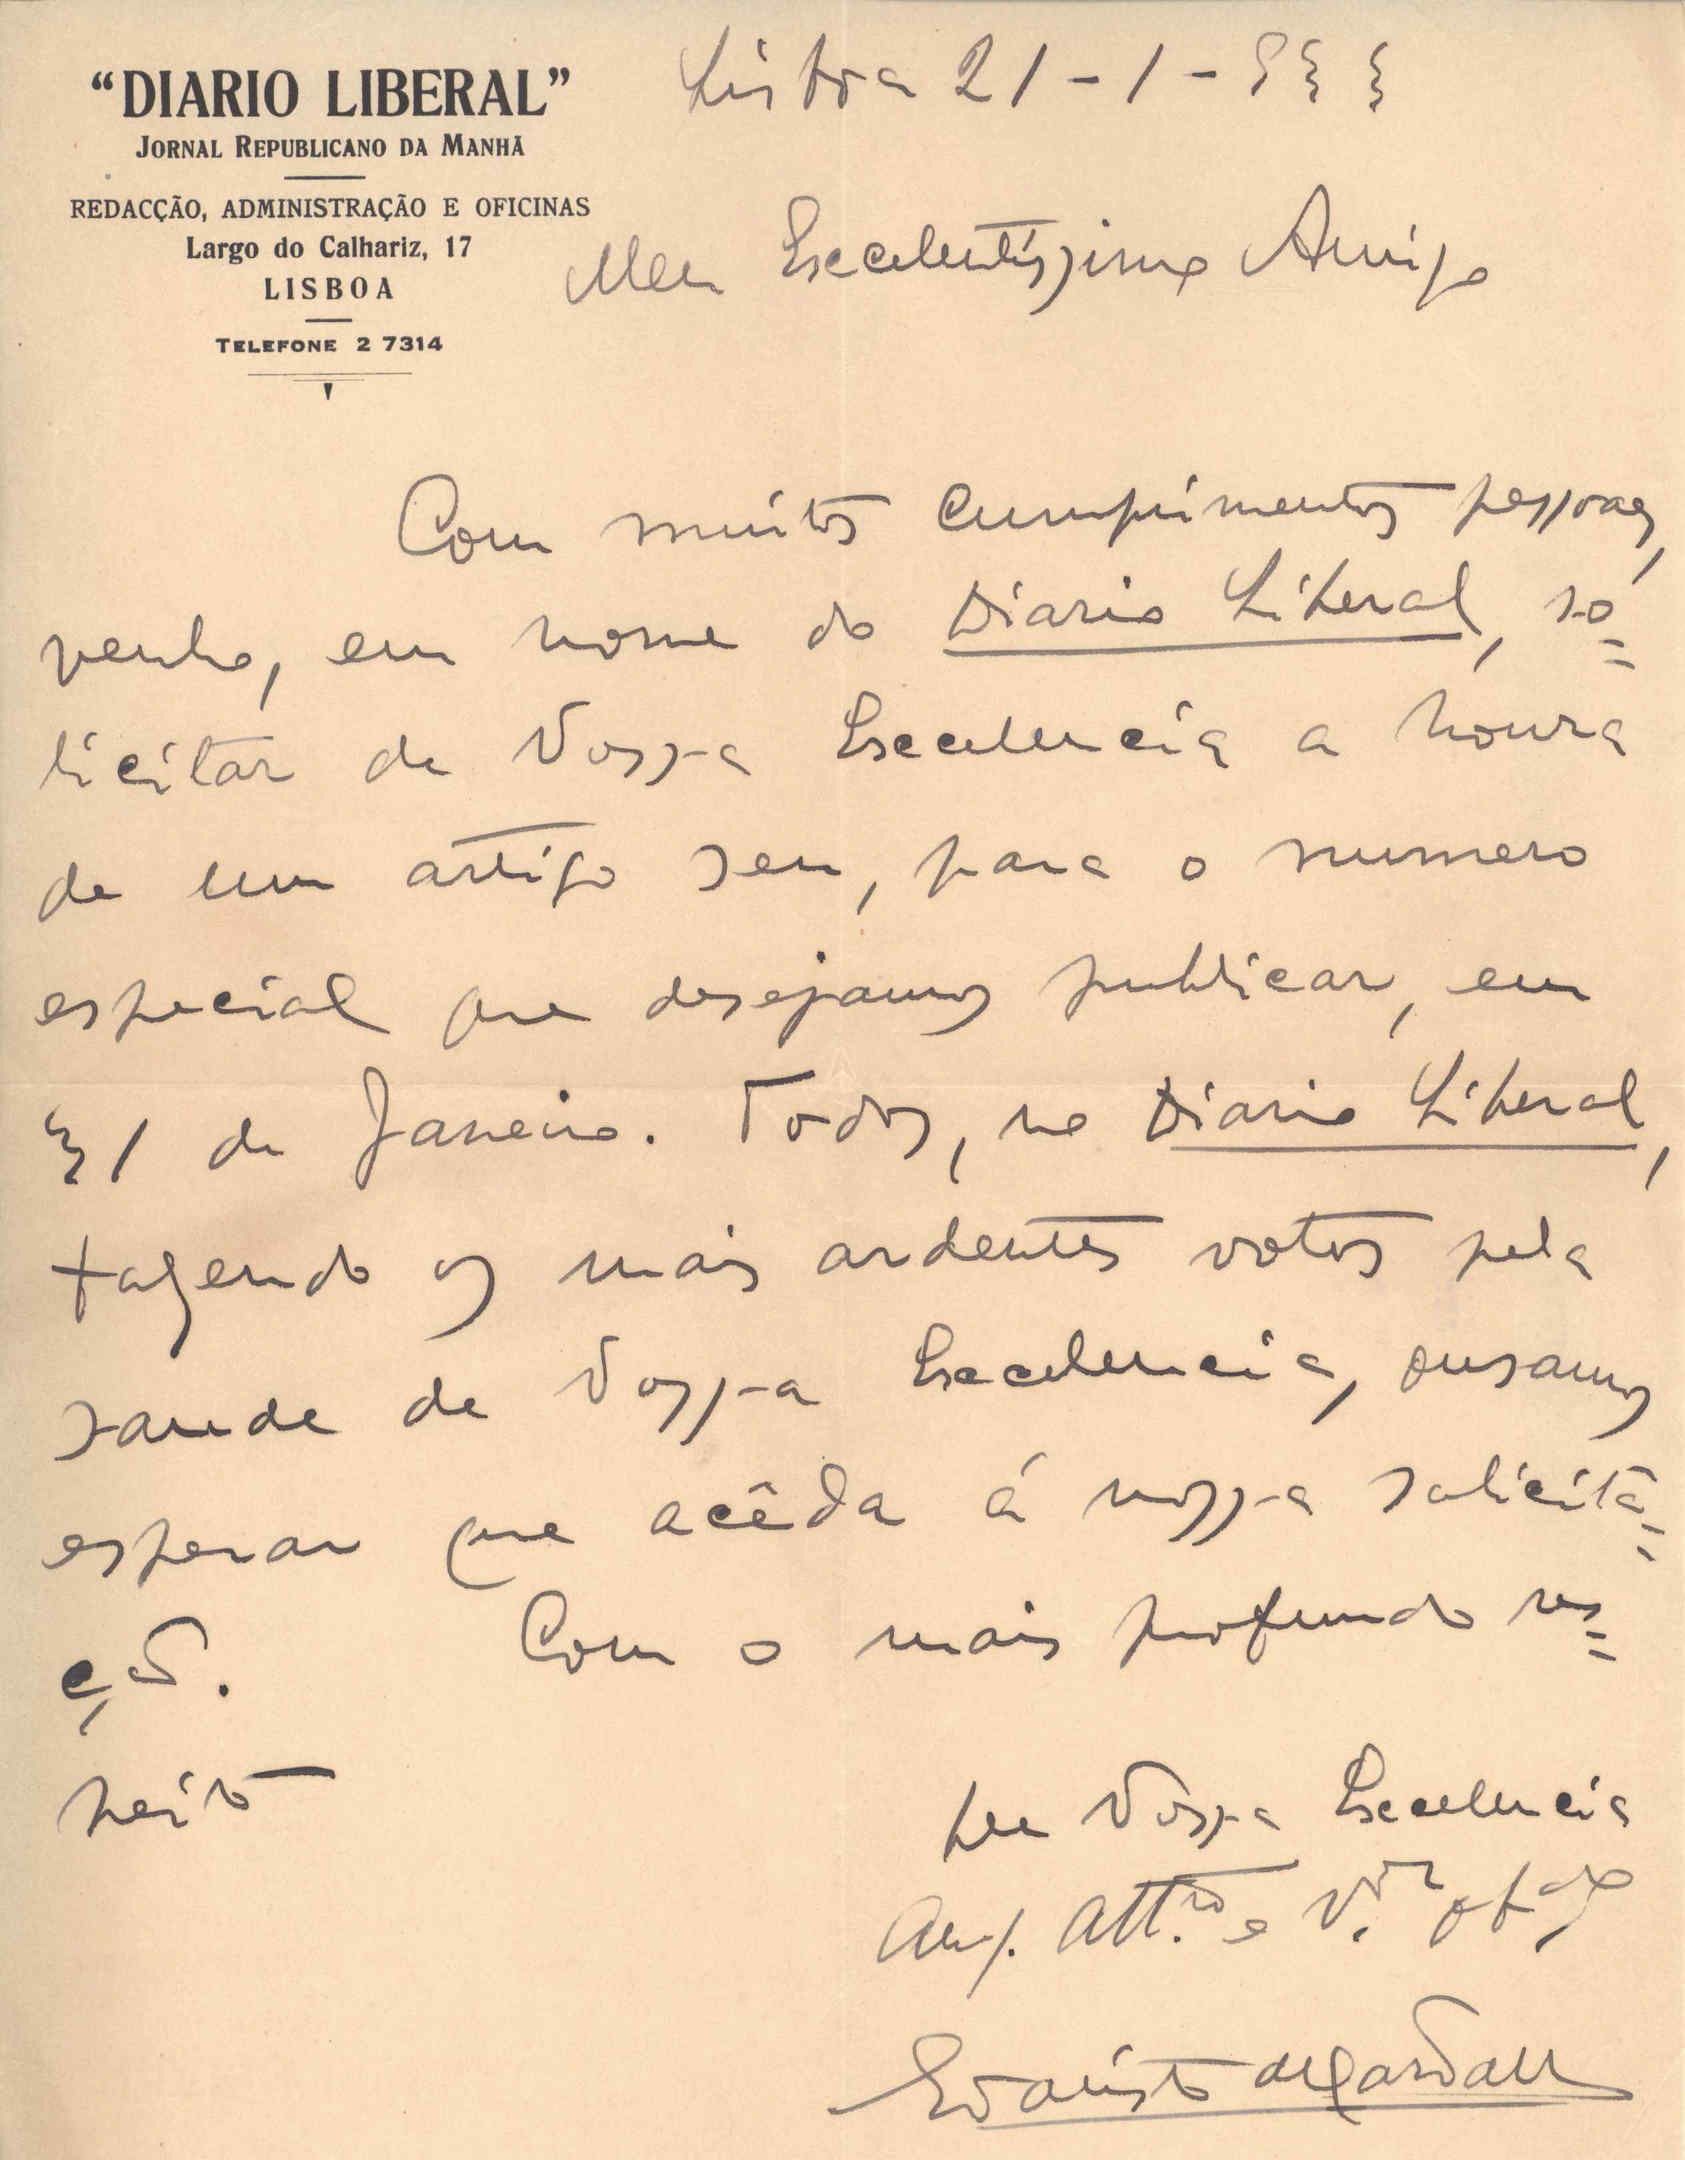 “DIARIO LIBERAL”
JORNAL REPUBLICANO DA MANHÃ
REDACÇÃO, ADMINISTRAÇÃO E OFICINAS
Largo do Calhariz, 17
LISBOA
TELEFONE 2 7314
Lisboa 21-1-933
Meu Excelentissimo Amigo
Com muitos cumprimentos pessoaes,
venho, em nome do Diario Liberal, so=
licitar de Vossa Excelencia a honra
de um artigo seu, para o numero
especial que desejamos publicar, em
31 de Janeiro. Todos, no Diario Liberal,
fazendo os mais ardentes votos pela
saude de Vossa Excelencia, ousamos
esperar que acêda á nossa solicita=
ção. Com o mais profundo res=
peito
de Vossa Excelencia
Am.º Att.to e V.or obg.do
Evaristo de Carvalho